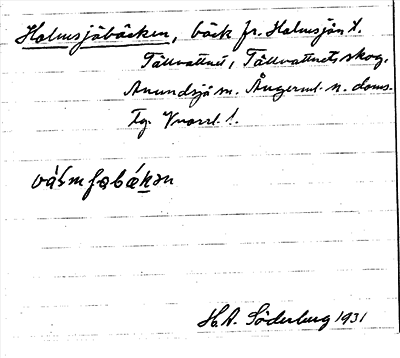 Holmsjöbäcken, bäck fr. Holmsjön t.
Tällvattnet, Tällvattnets skog,
Anundsjö sn. Ångerml. n. doms.
tg. Vnorrl. l.
H.A. Söderberg 1931